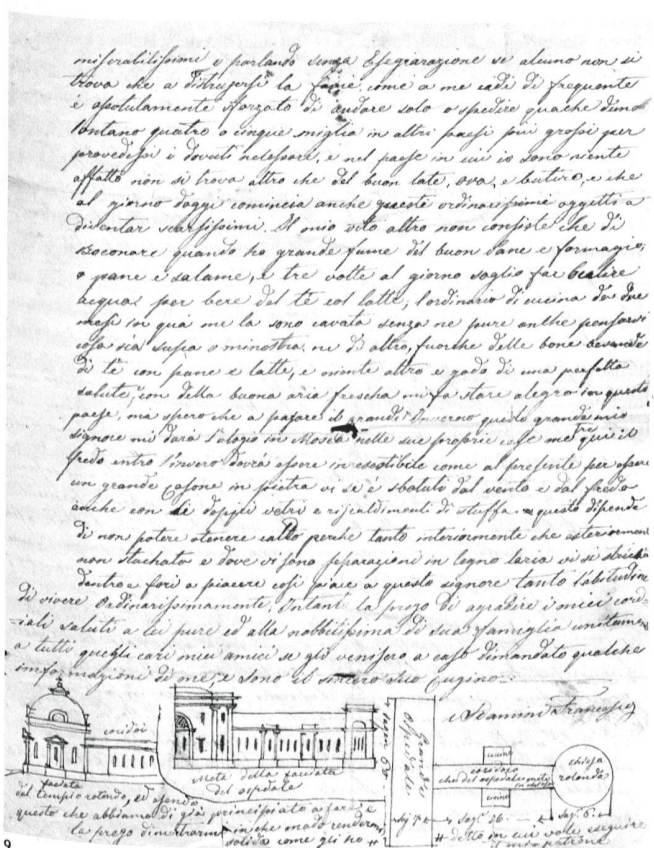 miserabilissimi e parlando senza Esegiarazione se alcuno non si
trova che a distrugersi la fame come a me cadi di frequente
è asolutamente sforzato di andare solo o spedire qualche d'uno
lontano quatro o cinque miglia in altri paesi più grossi per
provedersi i dovuti nelessare, e nel paese in cui io sono niente
affatto non si trova altro che del buon late, ova, e butiro, e che
al giorno d'oggi comincia anche queste ordinarissime oggetti a
diventar scarsissimi. Il mio vito altro non consiste che di
boconare quando ho grande fame del buon pane e formagio,
o pane e salame, e tre volte al giorno soglio fae bealire
acqua per bere del tè col latte, l'ordinario di cucina da due
mesi in quà me la sono cavata senza ne pure anche pensarvi
cosa sia supa o minestra, ne di altro, fuorche delle bone bevande
di tè con pane e latte, e niente altro e godo di una perfetta
salute, con della buona aria frescha mi fa stare alegro in questo
paese, ma spero che a pasare il grande Inverno questo grande mio
signore mi darà l'alogio in Mosca nelle sue proprie case mentre qui il
fredo entro l'invero dovrà essere inesestibile come al presente per essere
un grande Casone in pietra vi se è sbatuti dal vento e dal fredo
anche con li doppii vetri e riscaldimenti di stuffa. questo dipende
di non potere otenere caldo perche tanto interiormente che esteriormen
non stuchato e dove vi sono separazioni in legno laria vi si
dentro e fori a piacere cosi piace a questo signore tanto l'abitudine
di vivere Ordinarissimamente. Intant la prego di agradire i miei cord
iali saluti a lei pure ed alla nobbilissima di sua famiglia unitamen
a tutti quegli cari miei amici se gli venisero a caso dimandato qualche
imformazioni di me, e sono il sincero Suo Cugino
Francesco
coridoi
faciata
del tempio rotondo, ed essendo
questo che abbiamo di già principiato a fare e
la prego di mostrarmi in che modo rendermi
solida come gli ho #
Metà della faciata
del ospedale
Grande
Ospedale
cucine
coridojo
che del ospedale mete in chiesa
cucine
chiesa
rotonda
# detto in cui vole eseguire
il mio patrone
9